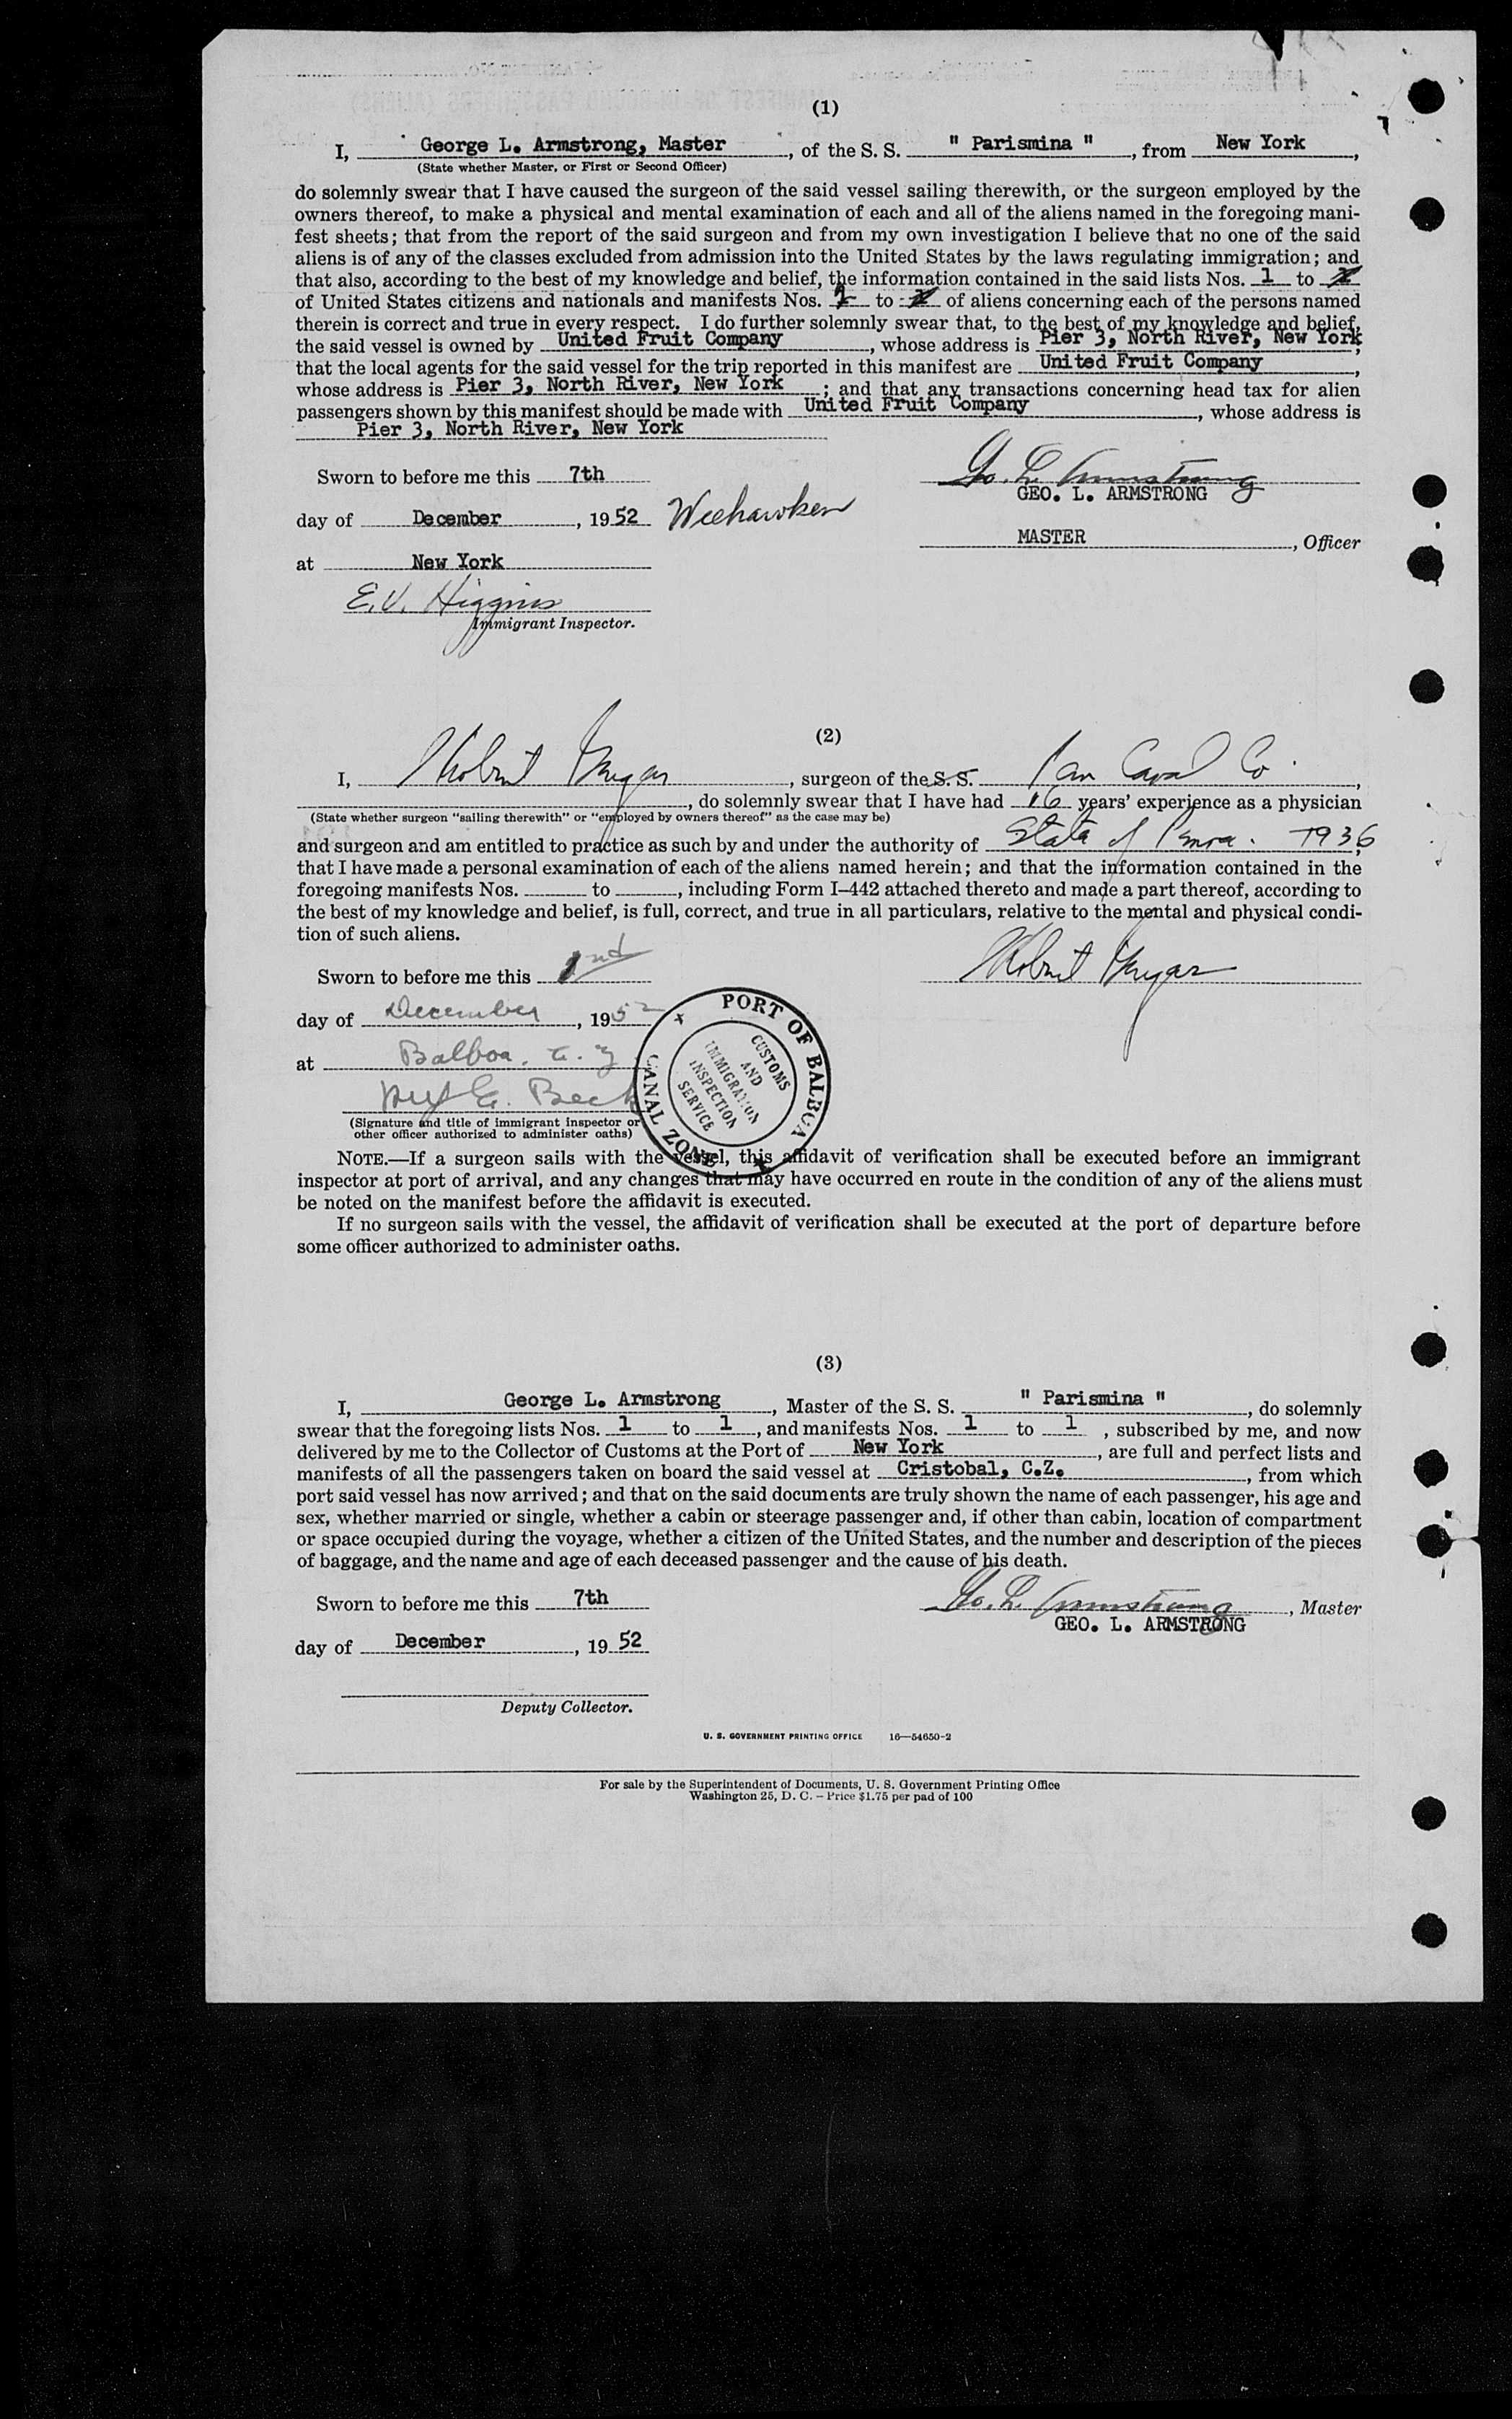 (1)
I, George L. Armstrong, Master, of the S. S. " Parismina ", from New York,
(State whether Master, or First or Second Officer)
do solemnly swear that I have caused the surgeon of the said vessel sailing therewith, or the surgeon employed by the
owners thereof, to make a physical and mental examination of each and all of the aliens named in the foregoing mani-
fest sheets; that from the report of the said surgeon and from my own investigation I believe that no one of the said
aliens is of any of the classes excluded from admission into the United States by the laws regulating immigration; and
that also, according to the best of my knowledge and belief, the information contained in the said lists Nos. 1 to
of United States citizens and nationals and manifests Nos. to of aliens concerning each of the persons named
therein is correct and true in every respect. I do further solemnly swear that, to the best of my knowledge and belief,
the said vessel is owned by United Fruit Company, whose address is Pier 3, North River, New York,
that the local agents for the said vessel for the trip reported in this manifest are United Fruit Company,
whose address is Pier 3, North River, New York; and that any transactions concerning head tax for alien
passengers shown by this manifest should be made with United Fruit Company, whose address is
Pier 3, North River, New York
Sworn to before me this 7th
Geo. L. Armstrong
GEO. L. ARMSTRONG
day of December, 1952 Weehawken
MASTER, Officer
at New York
E. V. Higgins
Immigrant Inspector.
(2)
I, Robert, surgeon of the S. S. Pan Canal Co.,
, do solemnly swear that I have had 16 years' experience as a physician
(State whether surgeon "sailing therewith" or "employed by owners thereof" as the case may be)
and surgeon and am entitled to practice as such by and under the authority of State of 1936;
that I have made a personal examination of each of the aliens named herein; and that the information contained in the
foregoing manifests Nos. to , including Form I–442 attached thereto and made a part thereof, according to
the best of my knowledge and belief, is full, correct, and true in all particulars, relative to the mental and physical condi-
tion of such aliens.
Sworn to before me this 2nd
Robert
day of December, 1952
at Balboa, C. Z.
Beck
(Signature and title of immigrant inspector or
other officer authorized to administer oaths)
PORT OF BALBOA
CANAL ZONE
CUSTOMS
AND
IMMIGRATION
INSPECTION
SERVICE
NOTE.—If a surgeon sails with the vessel, this affidavit of verification shall be executed before an immigrant
inspector at port of arrival, and any changes that may have occurred en route in the condition of any of the aliens must
be noted on the manifest before the affidavit is executed.
If no surgeon sails with the vessel, the affidavit of verification shall be executed at the port of departure before
some officer authorized to administer oaths.
(3)
I, George L. Armstrong, Master of the S. S. " Parismina ", do solemnly
swear that the foregoing lists Nos. 1 to 1, and manifests Nos. 1 to 1, subscribed by me, and now
delivered by me to the Collector of Customs at the Port of New York, are full and perfect lists and
manifests of all the passengers taken on board the said vessel at Cristobal, C.Z., from which
port said vessel has now arrived; and that on the said documents are truly shown the name of each passenger, his age and
sex, whether married or single, whether a cabin or steerage passenger and, if other than cabin, location of compartment
or space occupied during the voyage, whether a citizen of the United States, and the number and description of the pieces
of baggage, and the name and age of each deceased passenger and the cause of his death.
Sworn to before me this 7th
Geo. L. Armstrong, Master
GEO. L. ARMSTRONG
day of December, 1952
Deputy Collector.
U. S. GOVERNMENT PRINTING OFFICE 16—54650-2
For sale by the Superintendent of Documents, U. S. Government Printing Office
Washington 25, D. C. – Price $1.75 per pad of 100